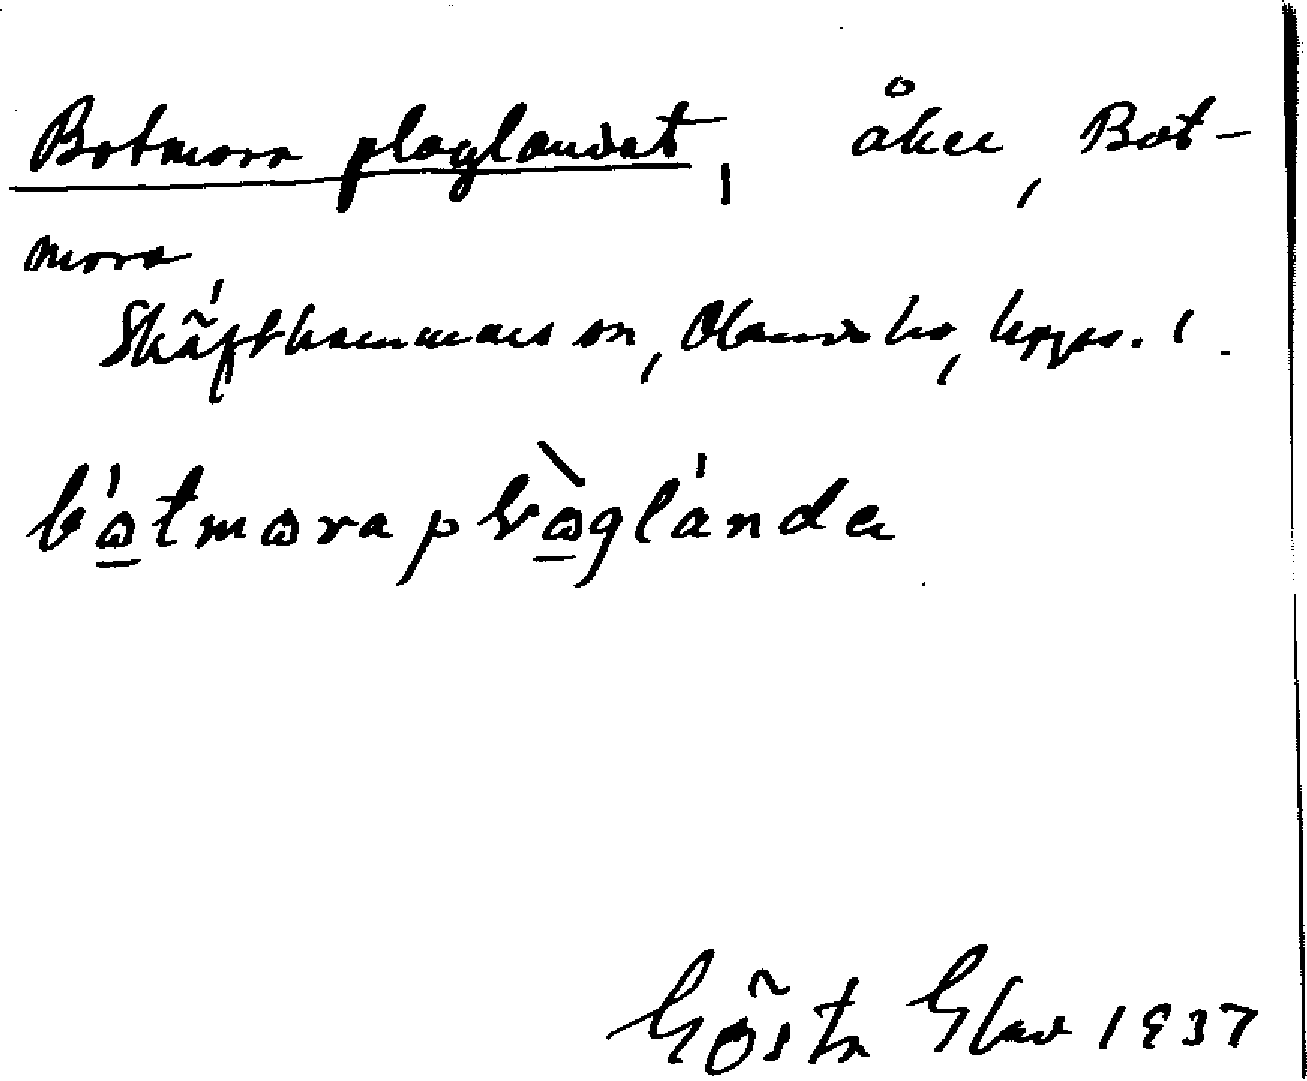 Botmora ploglandet, åker, Bot-
mora
Skäfthammars sn, Olands hd, Upps. l.
bótmωra plὼglánda
Gösta 1937